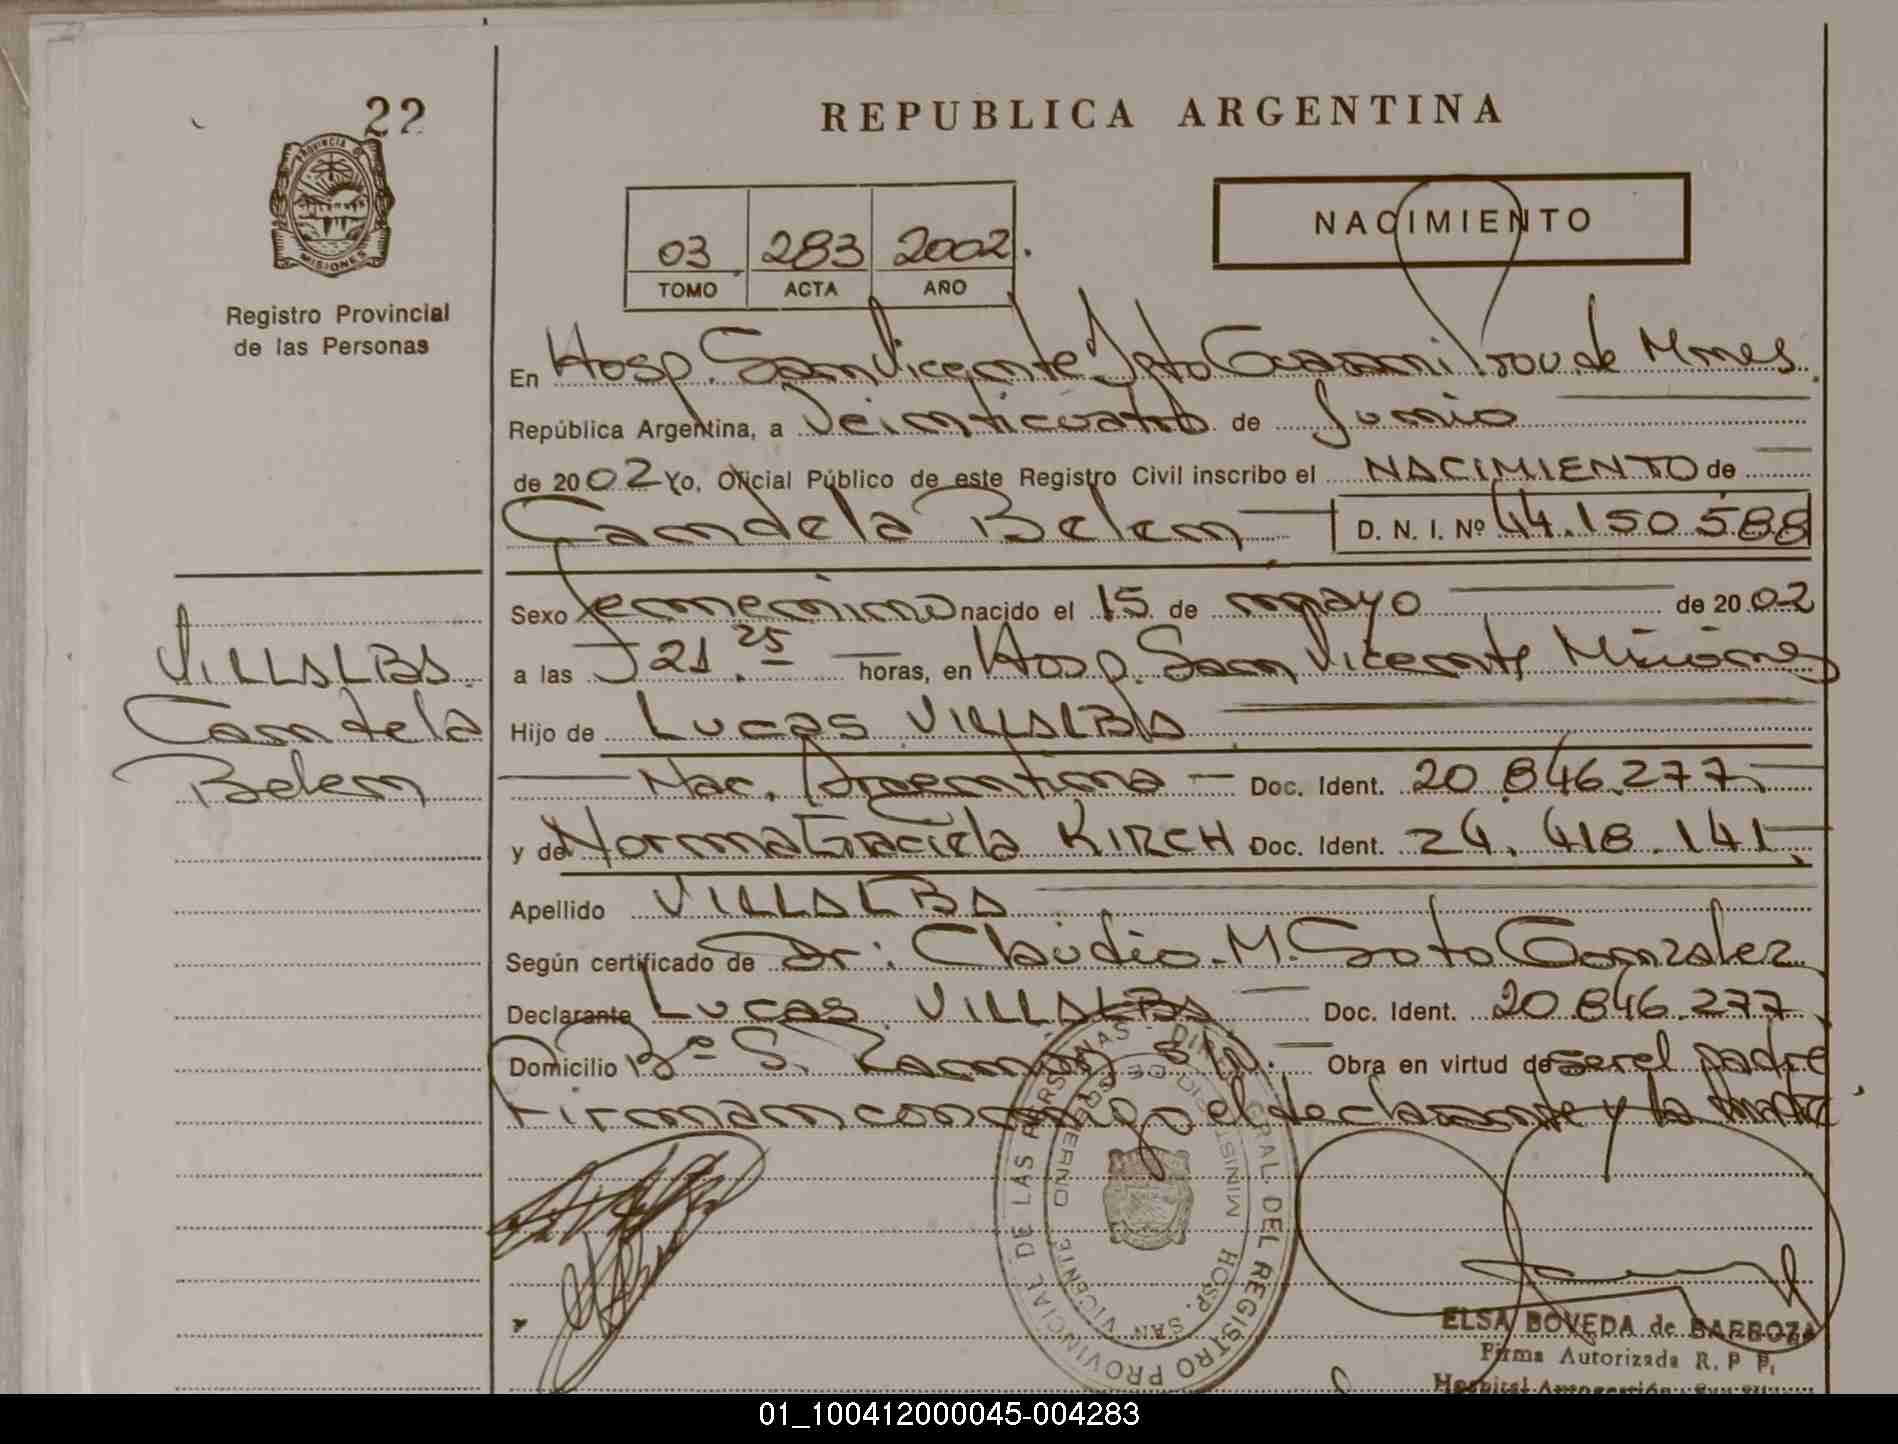 22
PROVINCIA DE
MISIONES
Registro Provincial
de las Personas
REPUBLICA ARGENTINA
03 283 2002.
TOMO ACTA AÑO
NACIMIENTO
En Hosp. San Vicente Dpto Guarani Prov. de Mnes.
República Argentina, a Veinticuatro de Junio
de 2002 Yo, Oficial Público de este Registro Civil inscribo el NACIMIENTO de
Candela Belen D. N. I. Nº 44.150.588
Sexo Femenino nacido el 15 de mayo de 2002
a las 21.25 horas, en Hosp. San Vicente Misiones
VILLALBA
Candela
Belen
Hijo de Lucas VILLALBA
Nac. Argentina Doc. Ident. 20.846.277
y de Norma Graciela KIRCH Doc. Ident. 24.418.141
Apellido VILLALBA
Según certificado de Dr: Claudio M. Soto Gonzalez
Declarante Lucas VILLALBA Doc. Ident. 20.846.277
Domicilio Bº S. Ramon S/N. Obra en virtud de ser el padre
Firman conmigo el declarante y la madre
DIR. GRAL. DEL REGISTRO PROVINCIAL DE LAS PERSONAS
MINISTERIO DE GOBIERNO
HOSP. SAN VICENTE
ELSA BOVEDA de BARBOZA
Firma Autorizada R. P. P.
01_100412000045-004283